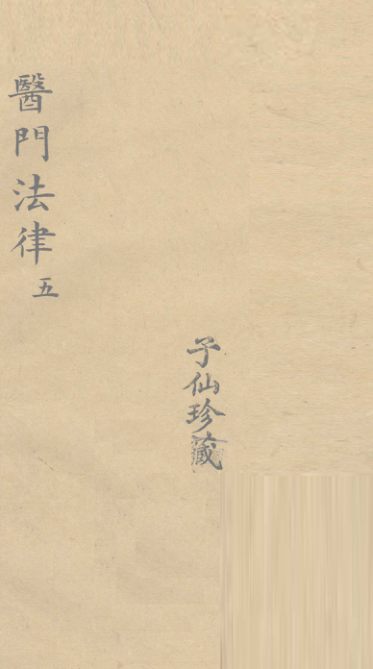 醫門法律 五
子仙珍藏